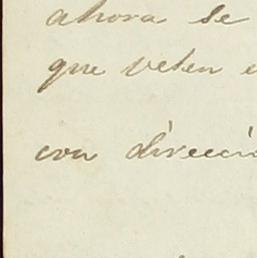 ahora se
que velen
con direcci